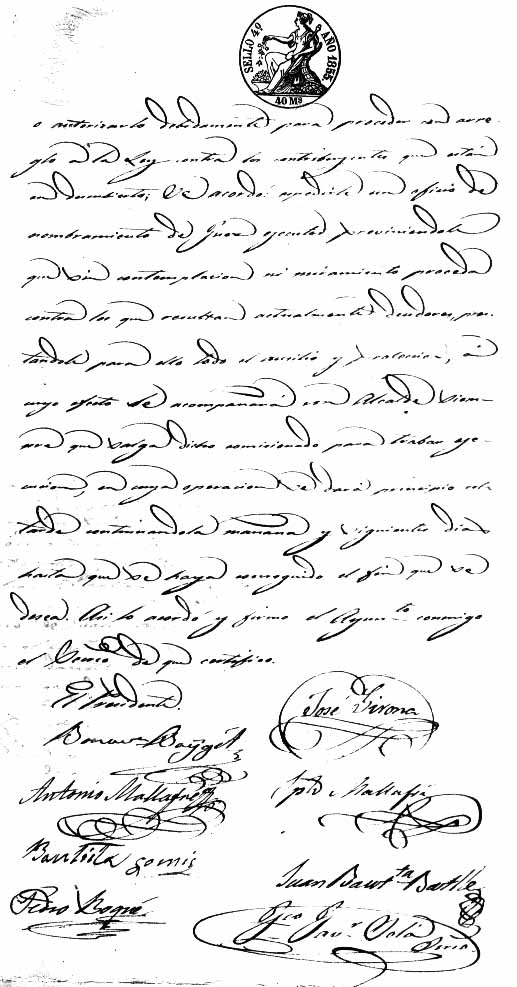 SELLO 4º AÑO 1855.
40 Mˢ
o autorizarlo debidamente para proceder con arre-
glo a la Ley contra los contribuyentes que están
en descubierto; Se acordó: expedirle un oficio de
nombramiento de Juez ejecutor previniendole
que sin contemplacion ni miramiento proceda
contra los que resultan actualmente deudores, pres-
tandole para ello todo el aucilio y proteccion, á
cuyo efecto le acompañará un Alcalde siem-
pre que salga dicho comisionado para trabar eje-
cucion, en cuya operacion se dará principio esta
tarde continuandola mañana y siguientes dias
hasta que se haya conseguido el fin que se
desea. Asi lo acordó y firmo el Ayunᵗᵒ conmigo
el Secreᵒ de que certifico.
El Presidente.
José Girona
Antonio Mallafré
Mallafré
Bautista Gomis
Juan Bautᵗᵃ Batlle
Pedro Roqué
Fᶜᵒ Javʳ Solá
Srio.